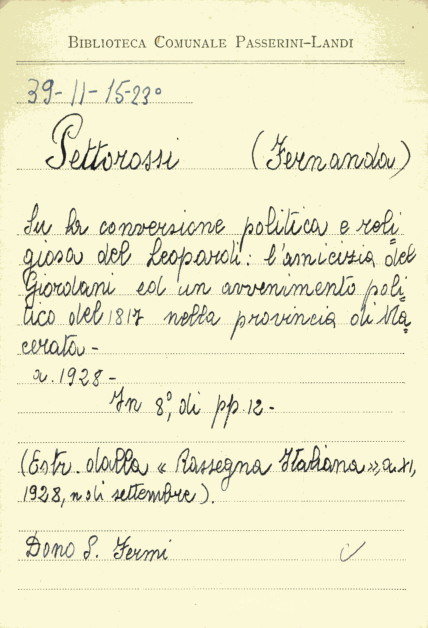 BIBLIOTECA COMUNALE PASSERINI-LANDI
39-11-15-23°
Pettorossi (Fernanda)
Su la conversione politica e reli=
giosa del Leopardi: l'amicizia del
Giordani ed un avvenimento poli=
tico del 1817 nella provincia di Ma=
cerata-
a. 1928-
In 8°, di pp. 12-
(Estr. dalla « Rassegna Italiana », a. XI,
1928, n di settembre).
Dono S. Fermi